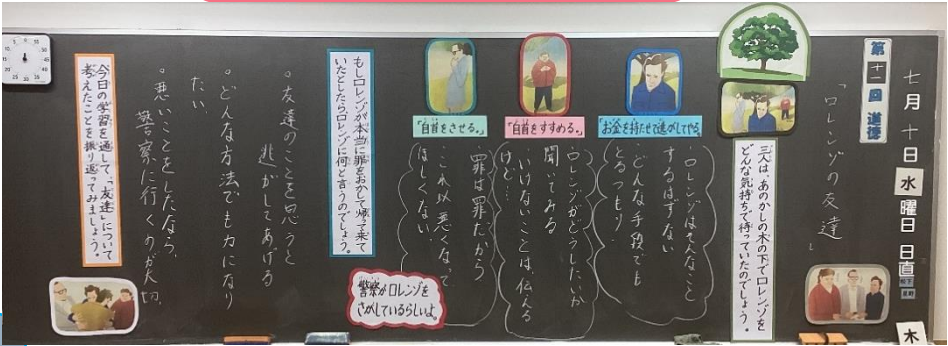 七月十日水曜日 日直
木
第十一回 道徳
「ロレンゾの友達」
三人は、あのかしの木の下でロレンゾを
どんな気持ちで待っていたのでしょう。
「お金を持たせて逃がしてやる。」
・ロレンゾはそんなこと
するはずない
・どんな手段でも
とるつもり
「自首をすすめる。」
・ロレンゾがどうしたいか
聞いてみる
・いけないことは、伝える
けど…
「自首をさせる。」
・罪は罪だから
・これ以上悪くなって
ほしくない。
警察がロレンゾを
さがしているらしいよ。
もしロレンゾが本当に罪をおかして帰って来て
いたとしたらロレンゾに何と言うのでしょう。
・友達のことを思うと
逃がしてあげる
・どんな方法でも力になり
たい
・悪いことをしたなら、
警察に行くのが大切。
今日の学習を通して、「友達」について
考えたことを振り返ってみましょう。